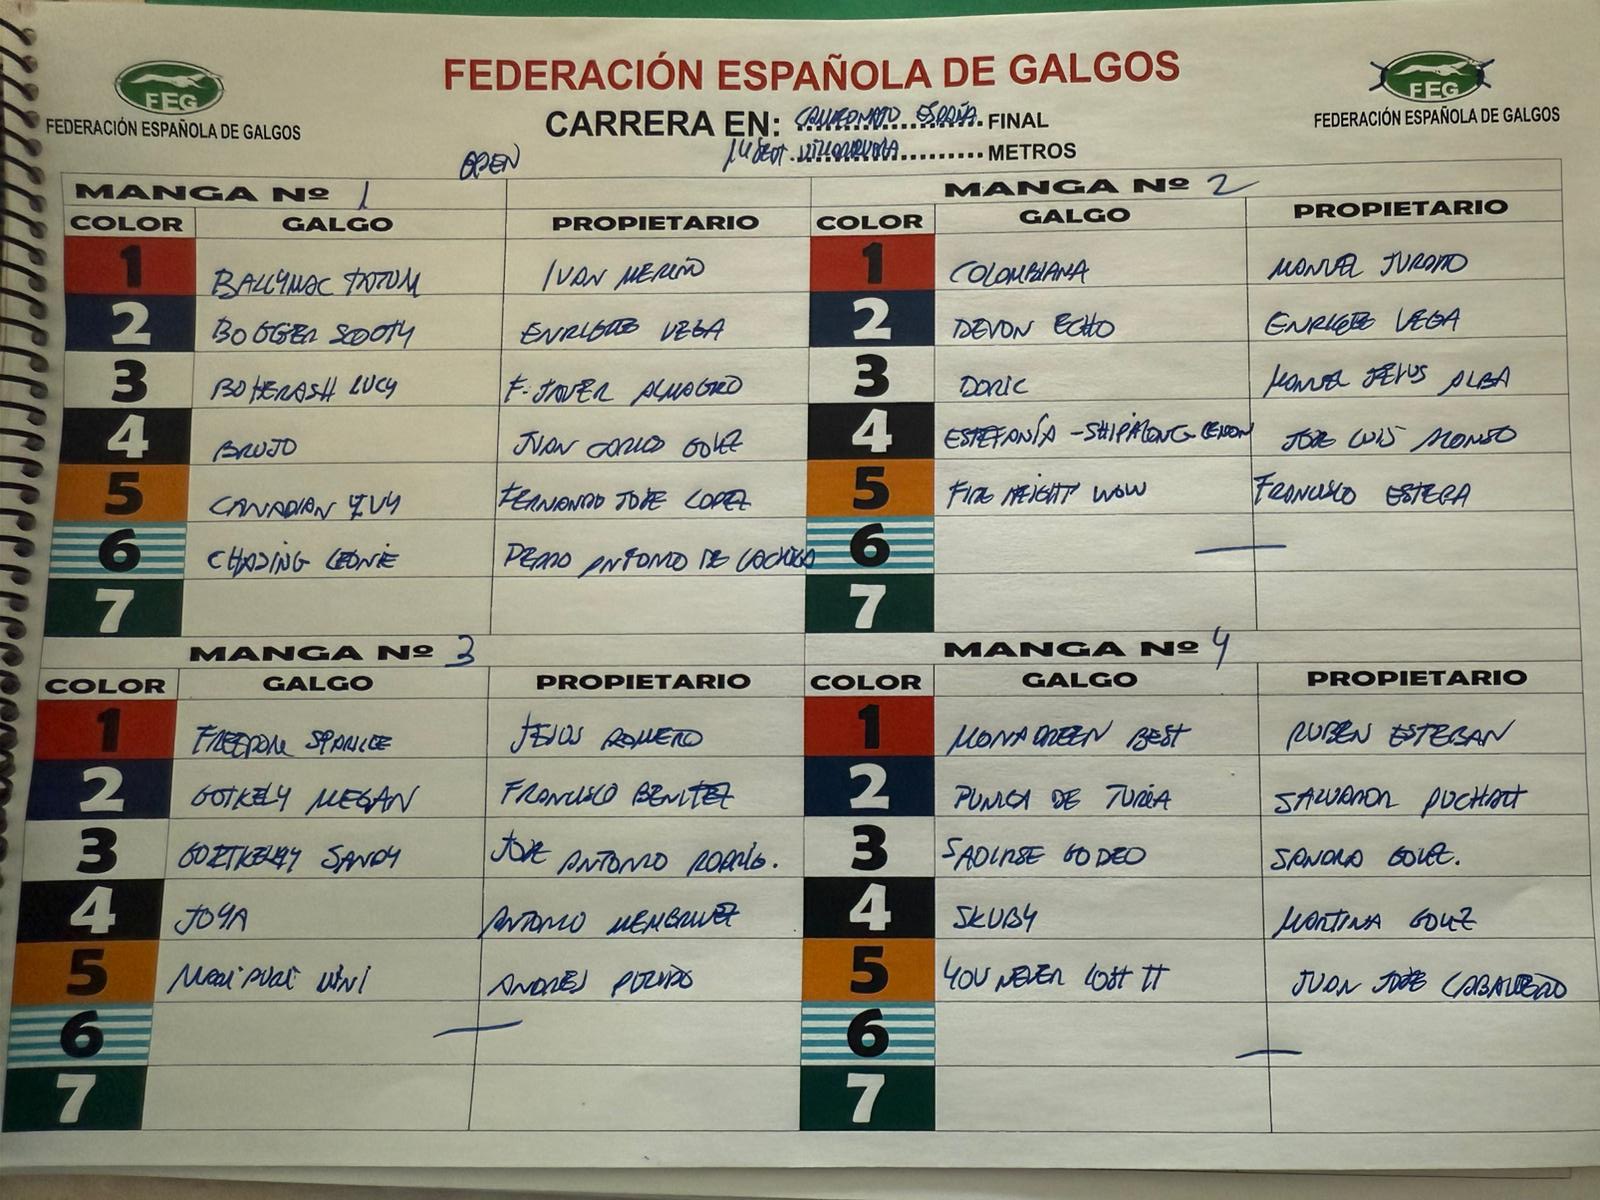 FEDERACIÓN ESPAÑOLA DE GALGOS
FEG
FEDERACIÓN ESPAÑOLA DE GALGOS
FEG
FEDERACIÓN ESPAÑOLA DE GALGOS
CARRERA EN: CAMPEONATO ESPAÑA FINAL
OPEN
14 SEPT. METROS
MANGA Nº 1
COLOR GALGO PROPIETARIO
1 BALLYMAC TATUM IVAN MERINO
2 BOGGER SOOTY ENRIQUE VEGA
3 BOHERASH LUCY F. JAVIER ALMAGRO
4 BRUJO JUAN CARLOS GOLEZ
5 CANADIAN IVY FERNANDO JOSE LOPEZ
6 CHASING LEONIE PEDRO ANTONIO DE
7
MANGA Nº 2
COLOR GALGO PROPIETARIO
1 COLOMBIANA MANUEL JURADO
2 DEVON ECHO ENRIQUE VEGA
3 DORIC MANUEL JESUS ALBA
4 ESTEFANÍA - JOSE LUIS ALONSO
5 FIRE HEIGHT WOW FRANCISCO ESTEPA
6
7
MANGA Nº 3
COLOR GALGO PROPIETARIO
1 FREEDOM SPARKLE JESUS ROMERO
2 MEGAN FRANCISCO BENITEZ
3 SANDY JOSE ANTONIO RODRIG.
4 JOYA ANTONIO
5 ANDRES PULIDO
6
7
MANGA Nº 4
COLOR GALGO PROPIETARIO
1 MONAGREEN BEST RUBEN ESTEBAN
2 PUNCA DE TURIA SALVADOR PUCHALT
3 SAOIRSE GO DEO SANDRA GOLEZ.
4 SKUBY MARTINA GOLEZ
5 YOU NEVER LOST IT JUAN JOSE CABALLERO
6
7